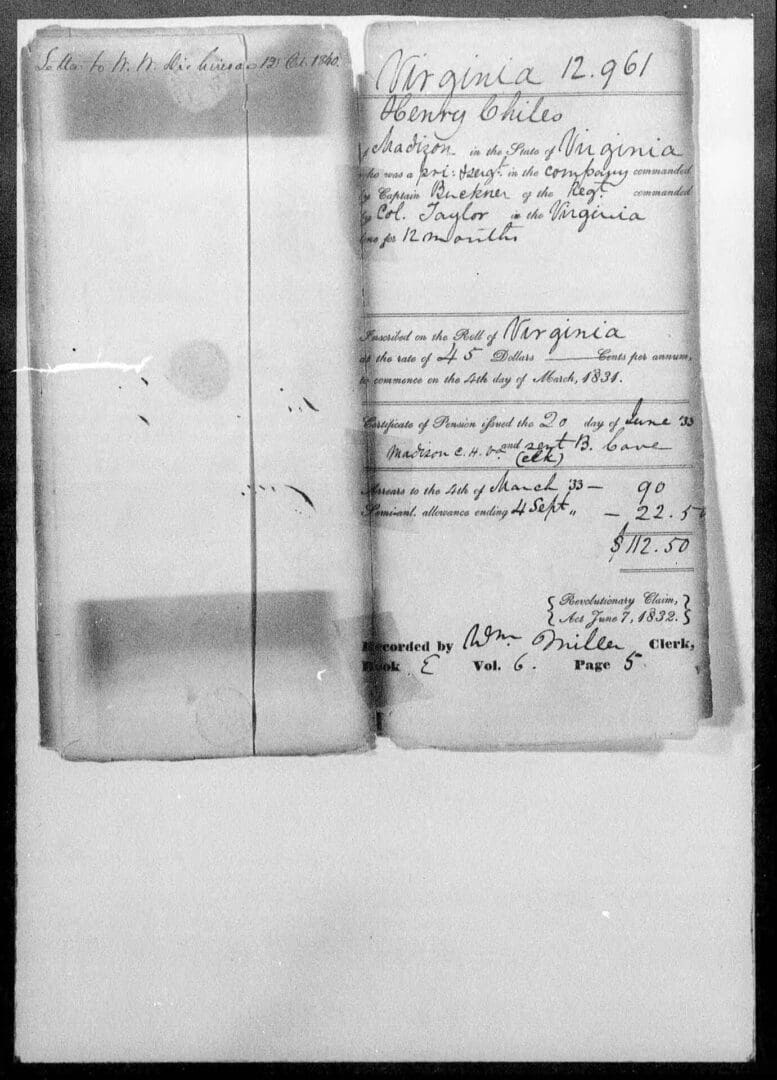 Letter to W. W. 13 Oct. 1840.
Virginia 12.961
Henry Chiles
Madison in the State of Virginia
who was a pri: & sergt. in the company commanded
by Captain Buckner of the Regt. commanded
by Col. Taylor in the Virginia
line for 12 months
Inscribed on the Roll of Virginia
at the rate of 45 Dollars — Cents per annum,
to commence on the 4th day of March, 1831.
Certificate of Pension issued the 20 day of June '33
and sent B. Cave
(clk)
Madison C. H. Va.
Arrears to the 4th of March '33 — 90
Semi-anl. allowance ending 4 Sept " — 22.50
$112.50
{Revolutionary Claim,}
{Act June 7, 1832.}
Recorded by Wm. Miller Clerk,
Book E Vol. 6. Page 5